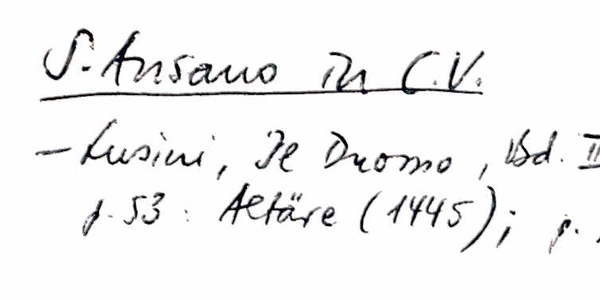 S. Ansano in C.V.
– Lusini, Il Duomo, Bd. II
p. 53: Altäre (1445); p.